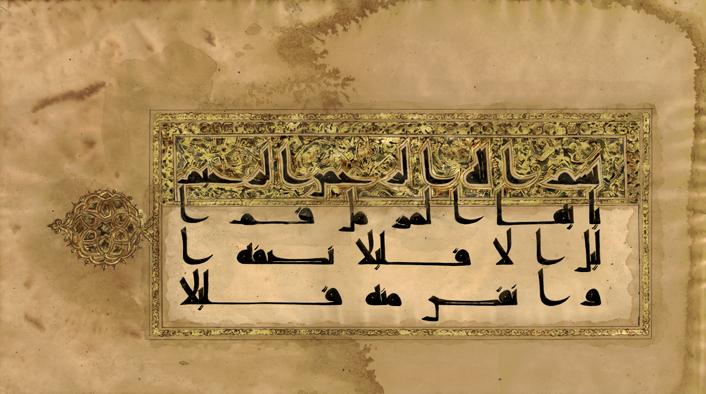 بسم الله الرحمن الرحيم
يا ايها المزمل قم ا
لليل الا قليلا نصفه ا
و انقص منه قليلا